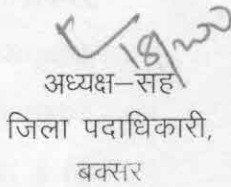 अध्यक्ष–सह
जिला पदाधिकारी,
बक्सर